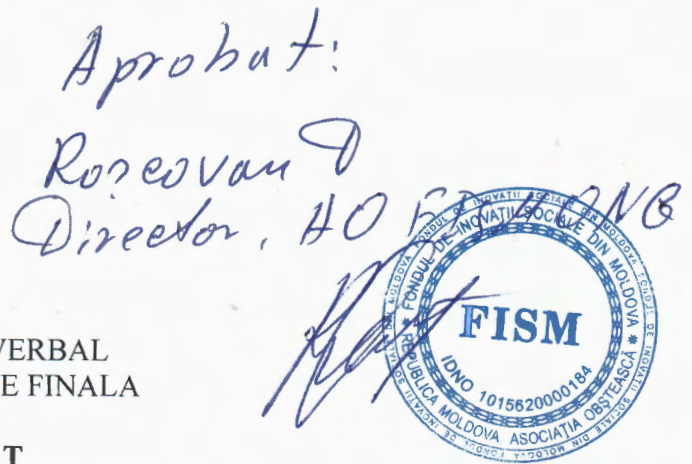 Aprobat:
Roscovan D
Director, AO
FONDUL DE INOVAȚII SOCIALE DIN MOLDOVA
REPUBLICA MOLDOVA ASOCIAȚIA OBȘTEASCĂ
FISM
IDNO 1015620000184
VERBAL
E FINALA
T